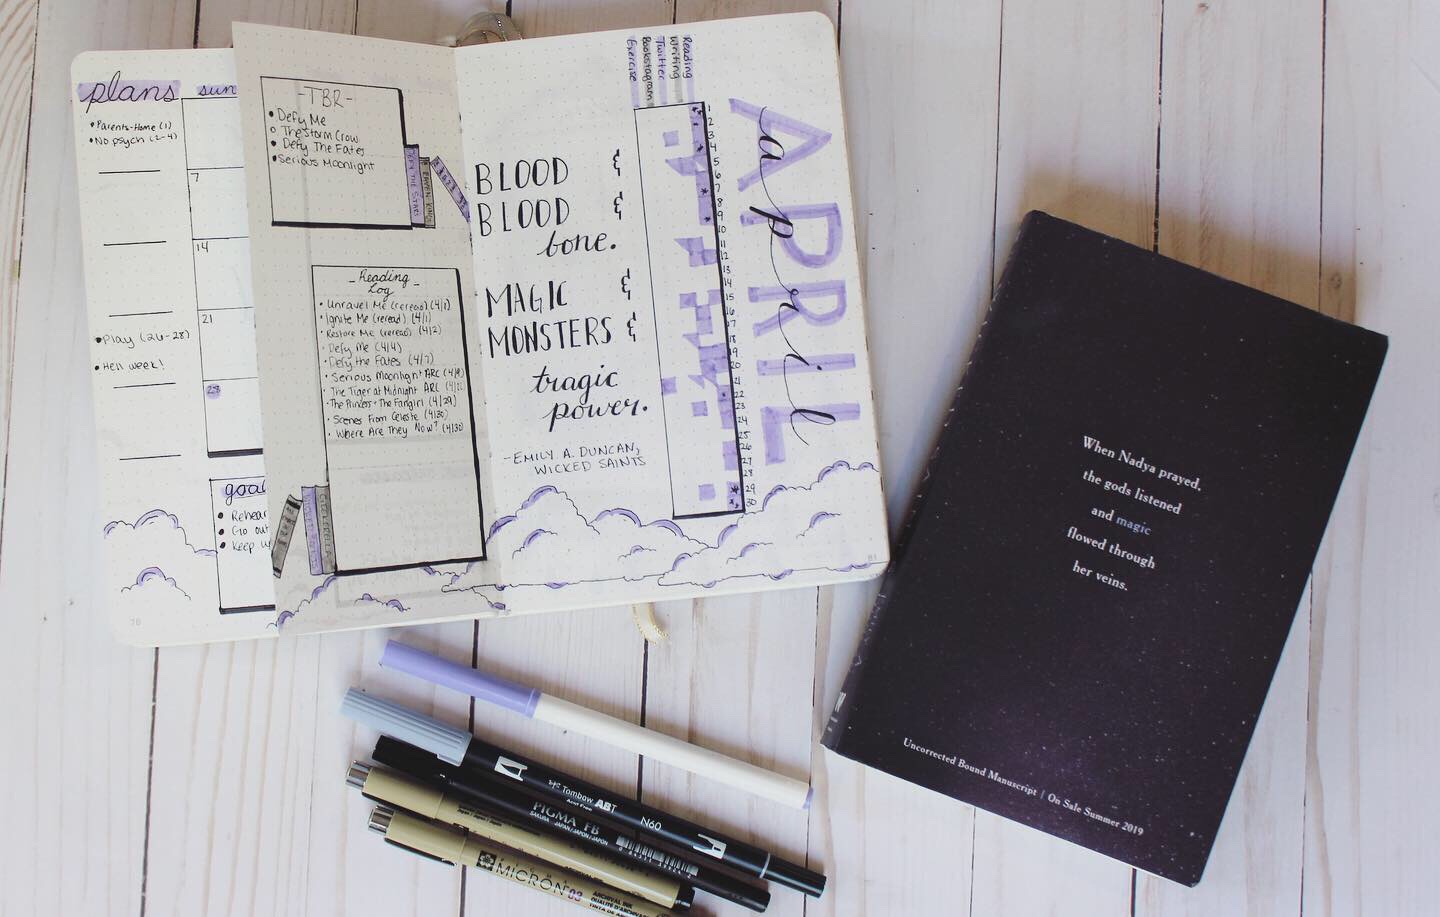 plans
sun
• Parents-Home (1)
• No psych (2-4)
• Play (26-28)
• Hell week!
7
14
21
28
goal
• Rehear
• Go out
• Keep u
-TBR-
• Defy Me
○ The Storm Crow
• Defy The Fates
• Serious Moonlight
- Reading
Log -
• Unravel Me (reread) (4/1)
• Ignite Me (reread) (4/1)
• Restore Me (reread) (4/2)
• Defy Me (4/4)
• Defy the Fates (4/7)
• Serious Moonlight ARC
• The Tiger at Midnight ARC
• The Princess + The Fangirl (4/29)
• Scenes From Celeste (4/30)
• Where Are They Now? (4/30)
BLOOD &
BLOOD &
bone.
MAGIC &
MONSTERS &
tragic
power.
-EMILY A. DUNCAN,
WICKED SAINTS
Reading
Writing
Twitter
Bookstagram
Exercise
1
2
3
4
5
6
7
8
9
10
11
12
13
14
15
16
17
18
19
20
21
22
23
24
25
26
27
28
29
30
APRIL
april
81
When Nadya prayed,
the gods listened
and magic
flowed through
her veins.
Uncorrected Bound Manuscript | On Sale Summer 2019
Tombow ABT
N60
PIGMA FB
SAKURA
MICRON 03
ARCHIVAL INK